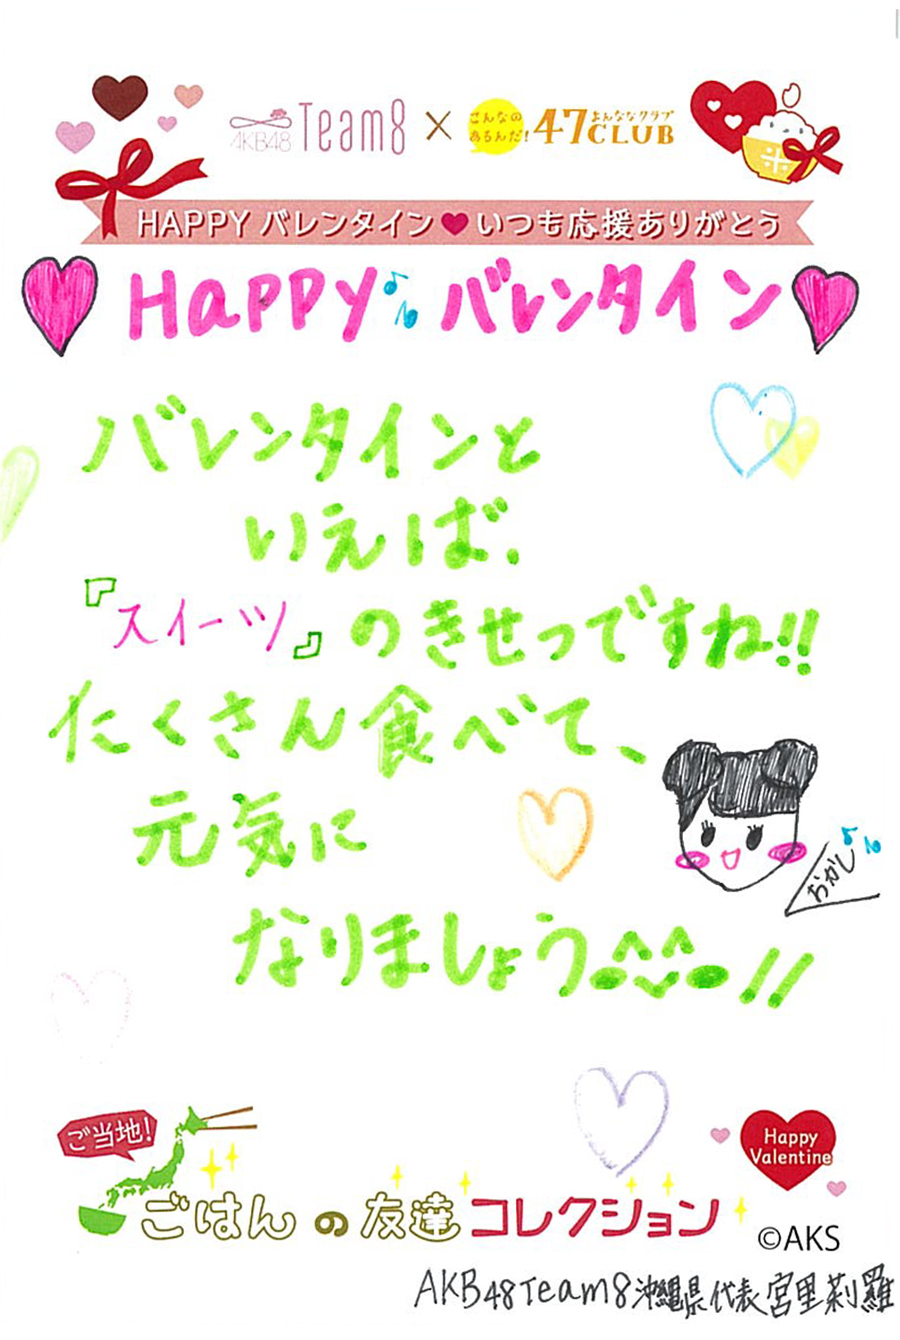 AKB48 Team8 × こんなの あるんだ! 47CLUB よんななクラブ
HAPPY バレンタイン♥いつも応援ありがとう
Happy♪ バレンタイン
バレンタインと
いえば、
『スイーツ』のきせつですね!!
たくさん食べて、
元気に
おかし
なりましょう^^!!
ご当地!
Happy
Valentine
ごはんの友達コレクション
©AKS
AKB48Team8沖縄県代表宮里莉羅